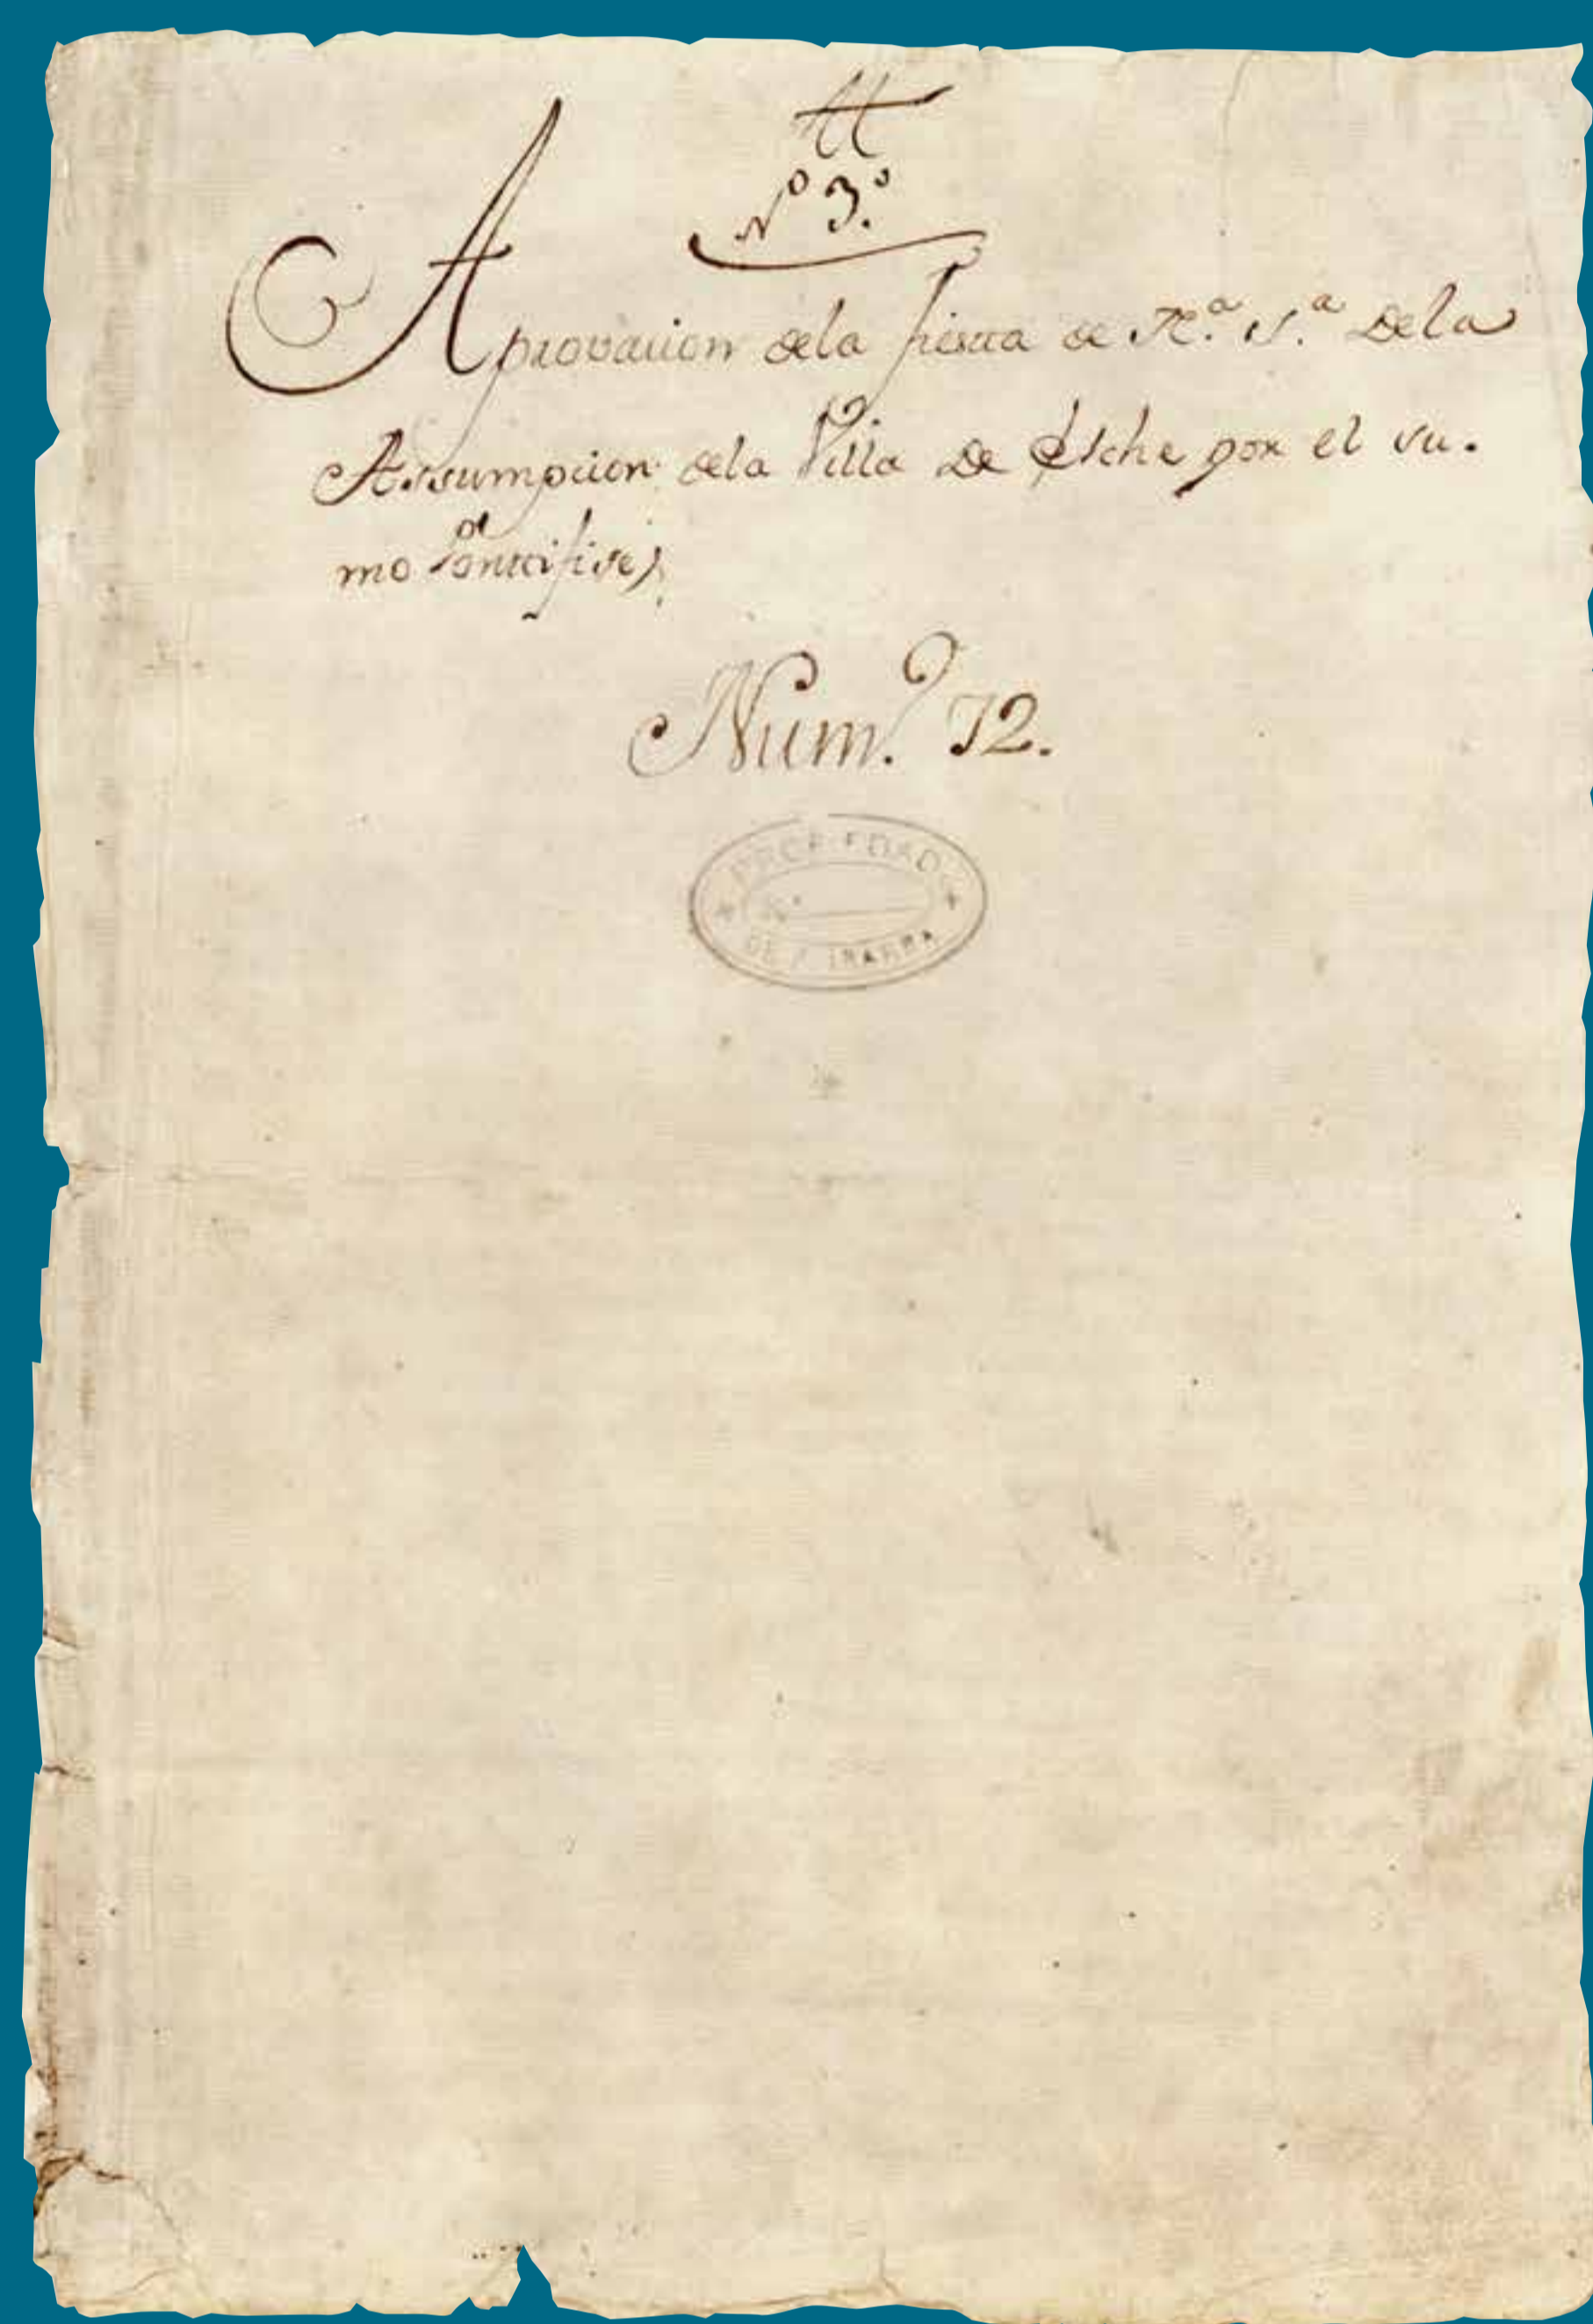 tt
Nº 3.º
Aprovacion dela fiesta de N.ª S.ª Dela
Assumpcion dela Villa De Elche por el su.
mo Pontifise,
Num.º 72.
PROPIEDAD
Nº
DE P. IBARRA